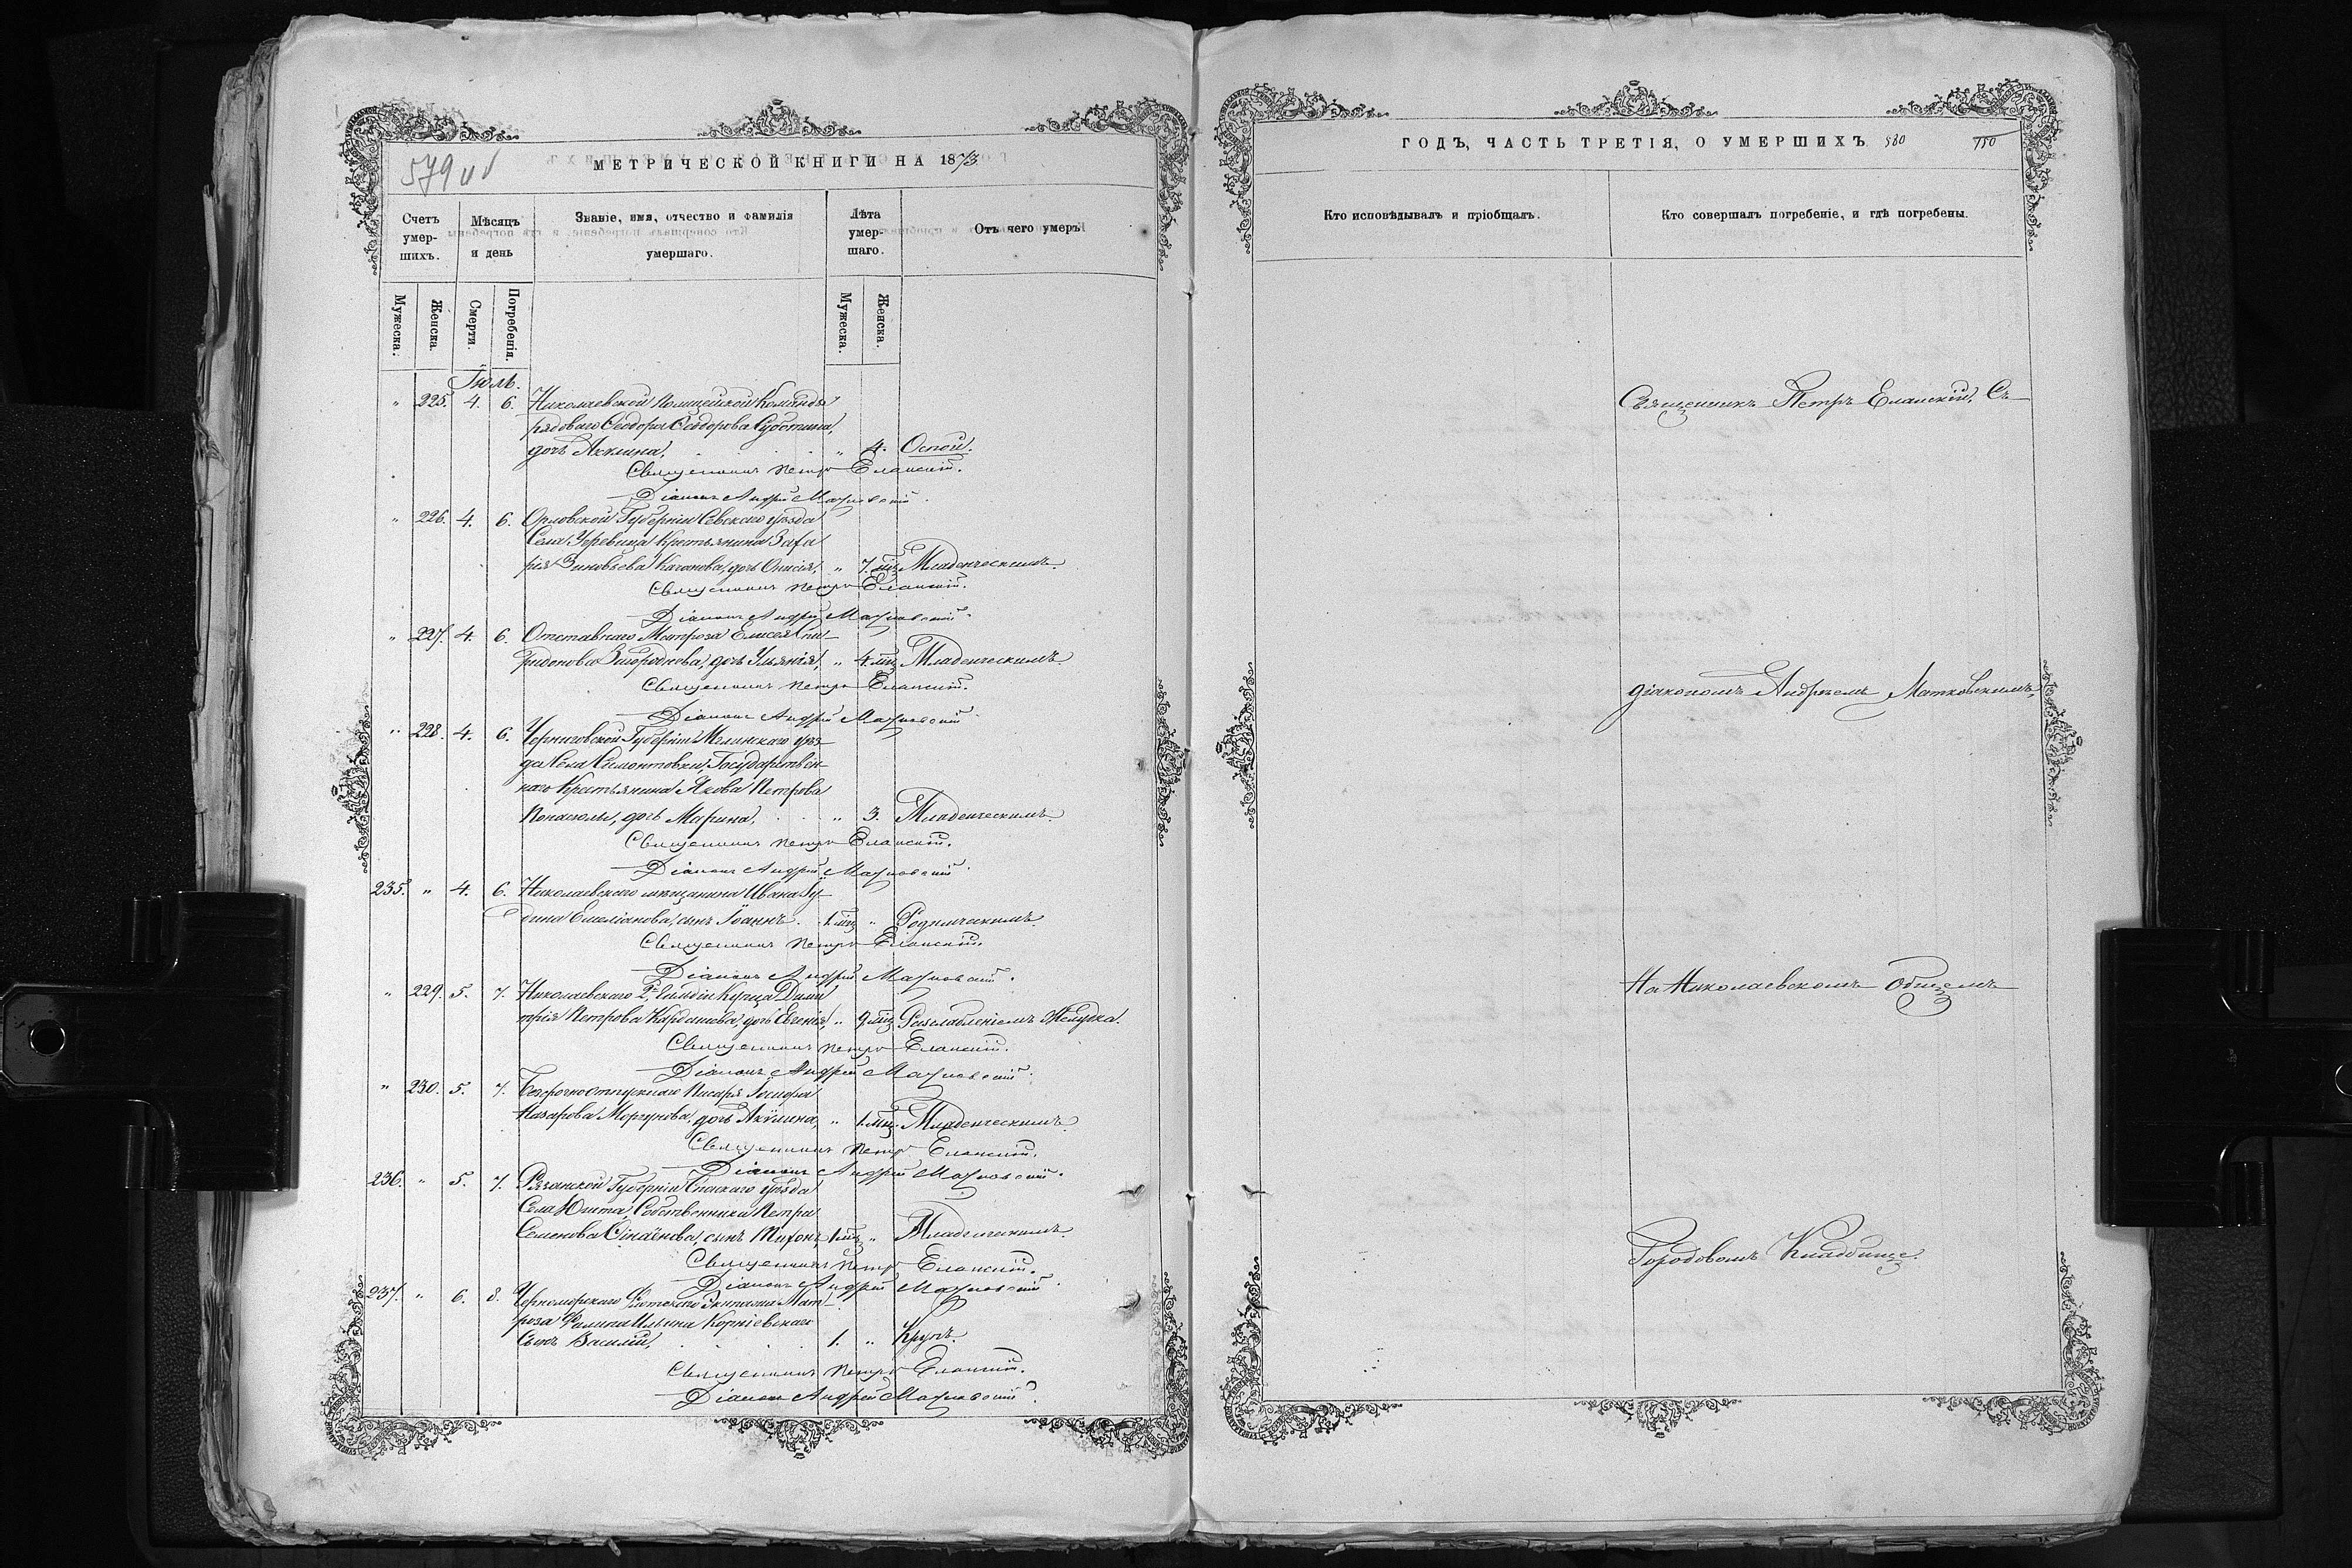 579 об
МЕТРИЧЕСКОЙ КНИГИ НА 1873
Счетъ умер-шихъ.
Мѣсяцъ и день
Званіе, имя, отчество и фамилія умершаго.
Лѣта умер-шаго.
Отъ чего умеръ.
Мужеска. Женска. Смерти. Погребенія. Мужеска. Женска.
Іюль.
" 225. 4. 6. Николаевской Полицейской Команды
рядоваго Ѳеодора Ѳеодорова
дочь Акилина, " 4. Оспой.
Священникъ Петръ Еланскій.
Діаконъ Андрей Матковскій.
" 226. 4. 6. Орловской Губерніи Севскаго уѣзда
Села Крестьянина Заха
рія Зиновьева дочь " 7. мц. Младенческимъ.
Священникъ Петръ Еланскій.
Діаконъ Андрей Матковскій.
" 227. 4. 6. Отставнаго Матроза Елисея Спи-
ридонова Загороднева, дочь Ульянія, " 4. мц. Младенческимъ.
Священникъ Петръ Еланскій.
Діаконъ Андрей Матковскій.
" 228. 4. 6. Черниговской Губерніи Мглинскаго уѣз-
да Села Симонтовки, Государствен-
наго Крестьянина Якова Петрова
дочь Марина, " 3. Младенческимъ.
Священникъ Петръ Еланскій.
Діаконъ Андрей Матковскій.
235. " 4. 6. Николаевскаго мѣщанина Ивана
Емеліанова, сынъ Іоаннъ. 1 мц. " Родимческимъ.
Священникъ Петръ Еланскій.
Діаконъ Андрей Матковскій.
" 229. 5. 7. Николаевскаго 2й Гильдіи Купца Дими
трія Петрова Кардашева, дочь Евгенія, " 9. мц. Разслабленіемъ Желудка.
Священникъ Петръ Еланскій.
Діаконъ Андрей Матковскій.
" 230. 5. 7. Безсрочноотпускнаго Писаря Іосифа
Назарова Моргунова, дочь Акилина, " 1. мц. Младенческимъ.
Священникъ Петръ Еланскій.
Діаконъ Андрей Матковскій.
236. " 5. 7. Рязанской Губерніи Спаскаго уѣзда
Села Ю Собственника Петра
Семенова сынъ Тихонъ, 1 мц. " Младенческимъ.
Священникъ Петръ Еланскій.
Діаконъ Андрей Матковскій.
237. " 6. 8. Черноморскаго Флотскаго Экипажа Мат-
роза Филипа Ильина Корніевскаго
Сынъ Василій, 1. " Крупъ.
Священникъ Петръ Еланскій.
Діаконъ Андрей Матковскій.
ГОДЪ, ЧАСТЬ ТРЕТІЯ, О УМЕРШИХЪ. 580 750
Кто исповѣдывалъ и пріобщалъ.
Кто совершалъ погребеніе, и гдѣ погребены.
Священникъ Петръ Еланскій, Съ
діакономъ Андреемъ Матковскимъ,
На Николаевскомъ Общемъ
Городовомъ Кладбище.